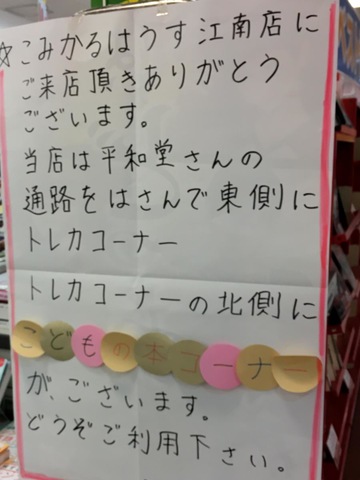 ☆こみかるはうす江南店に
ご来店頂きありがとう
ございます。
当店は平和堂さんの
通路をはさんで東側に
トレカコーナー
トレカコーナーの北側に
こどもの本コーナー
が、ございます。
どうぞご利用下さい。